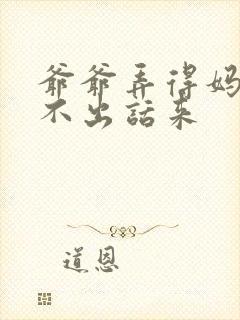 爷爷弄得妈
不出話来
道恩